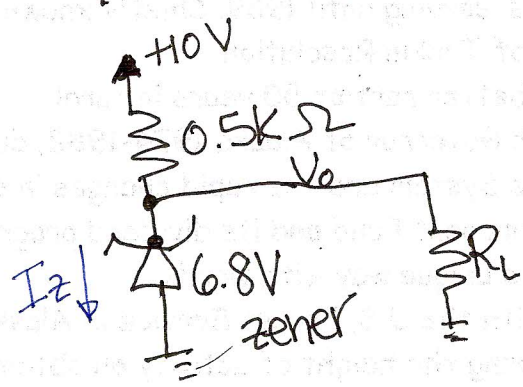 +10V
0.5KΩ
Vo
Iz
6.8V
zener
RL